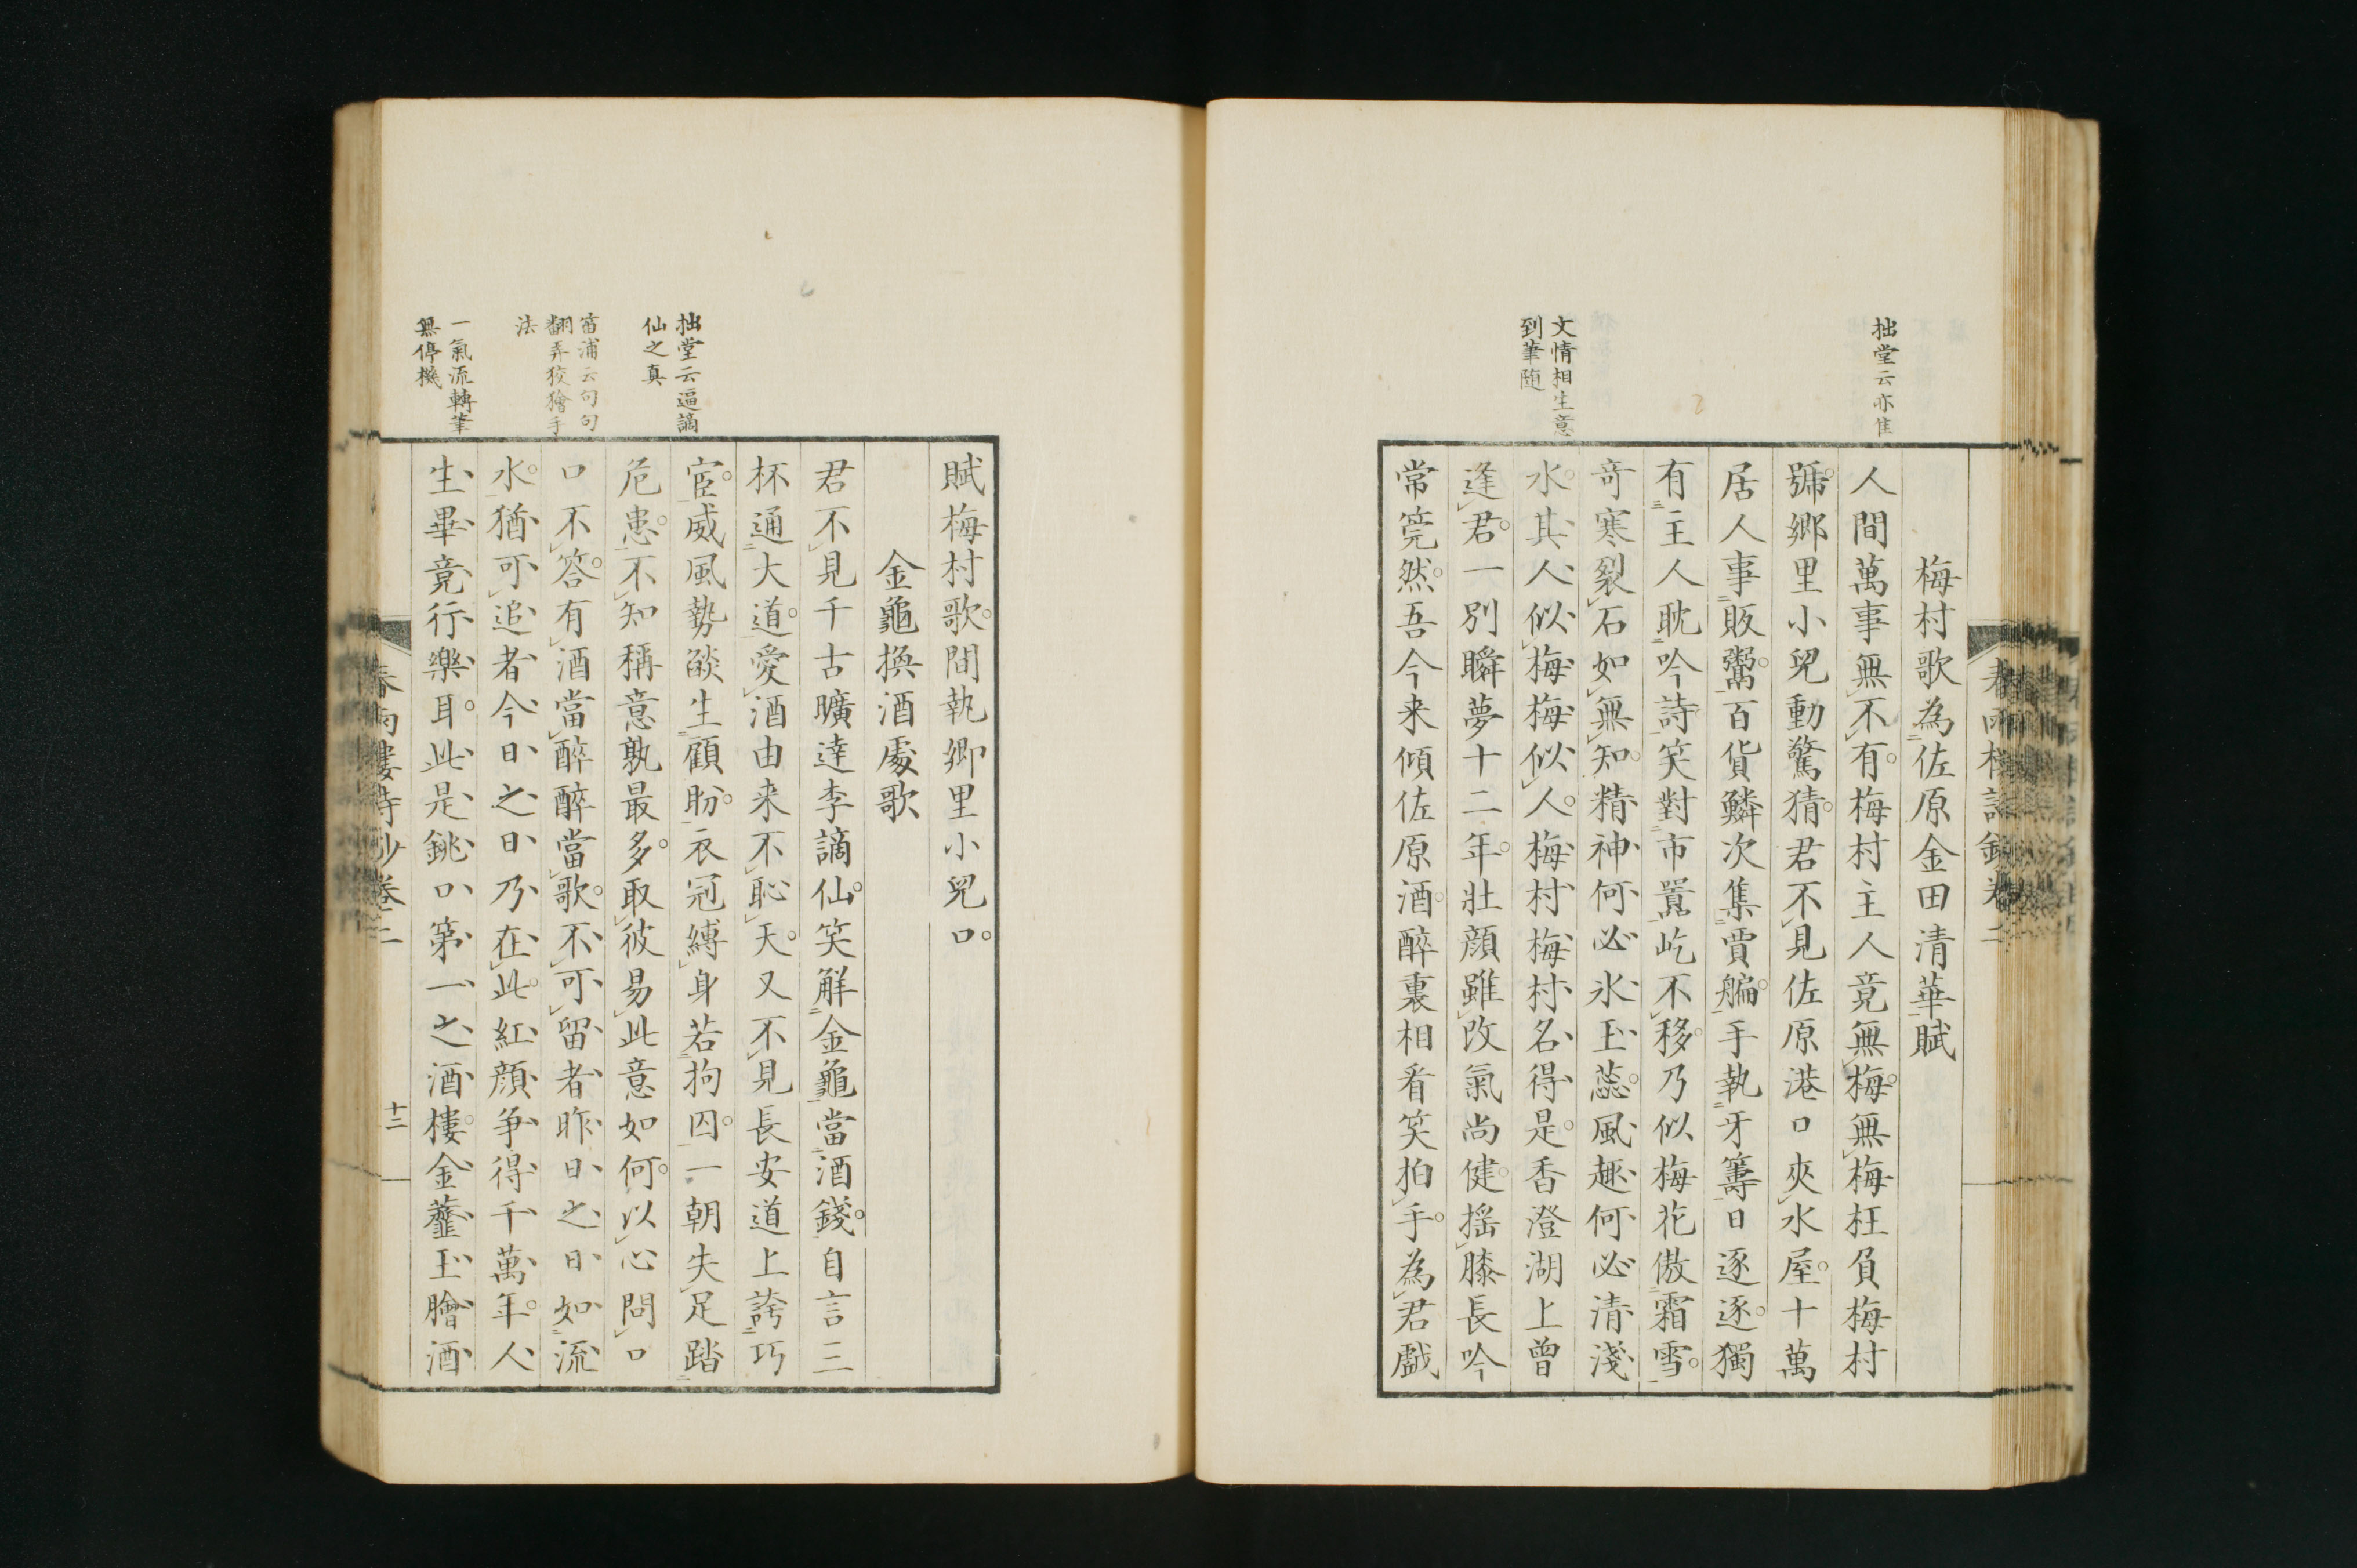 拙堂云亦隹
文情相生意
到筆随
梅村歌為佐原金田清華賦
人間萬事無不有梅村主人竟無梅無梅枉負梅村
號鄉里小兒動驚猜君不見佐原港口夾水屋十萬
居人事販鬻百貨鱗次集賈艑手執牙籌日逐逐獨
有主人耽吟詩笑對市囂屹不移乃似梅花傲霜雪
奇寒裂石如無知精神何必氷玉蕊風趣何必清淺
水其人似梅梅似人梅村梅村名得是香澄湖上曽
逢君一別瞬夢十二年壯顔雖改氣尚健搖膝長吟
常莞然吾今来傾佐原酒醉裏相看笑拍手為君戲
拙堂云逼謫
仙之真
笛浦云句句
翻弄狡獪手
法
一氣流轉筆
無停機
賦梅村歌間執鄉里小兒口
金龜換酒處歌
君不見千古曠達李謫仙笑解金龜當酒錢自言三
杯通大道愛酒由来不恥天又不見長安道上誇巧
宦威風勢燄生顧盼衣冠縛身若拘囚一朝失足踏
危患不知稱意孰最多取彼易此意如何以心問口
口不答有酒當醉醉當歌不可留者昨日之日如流
水猶可追者今日之日乃在此紅顔争得千萬年人
生畢竟行樂耳此是銚口第一之酒樓金虀玉膾酒
春雨樓詩鈔卷二
十二